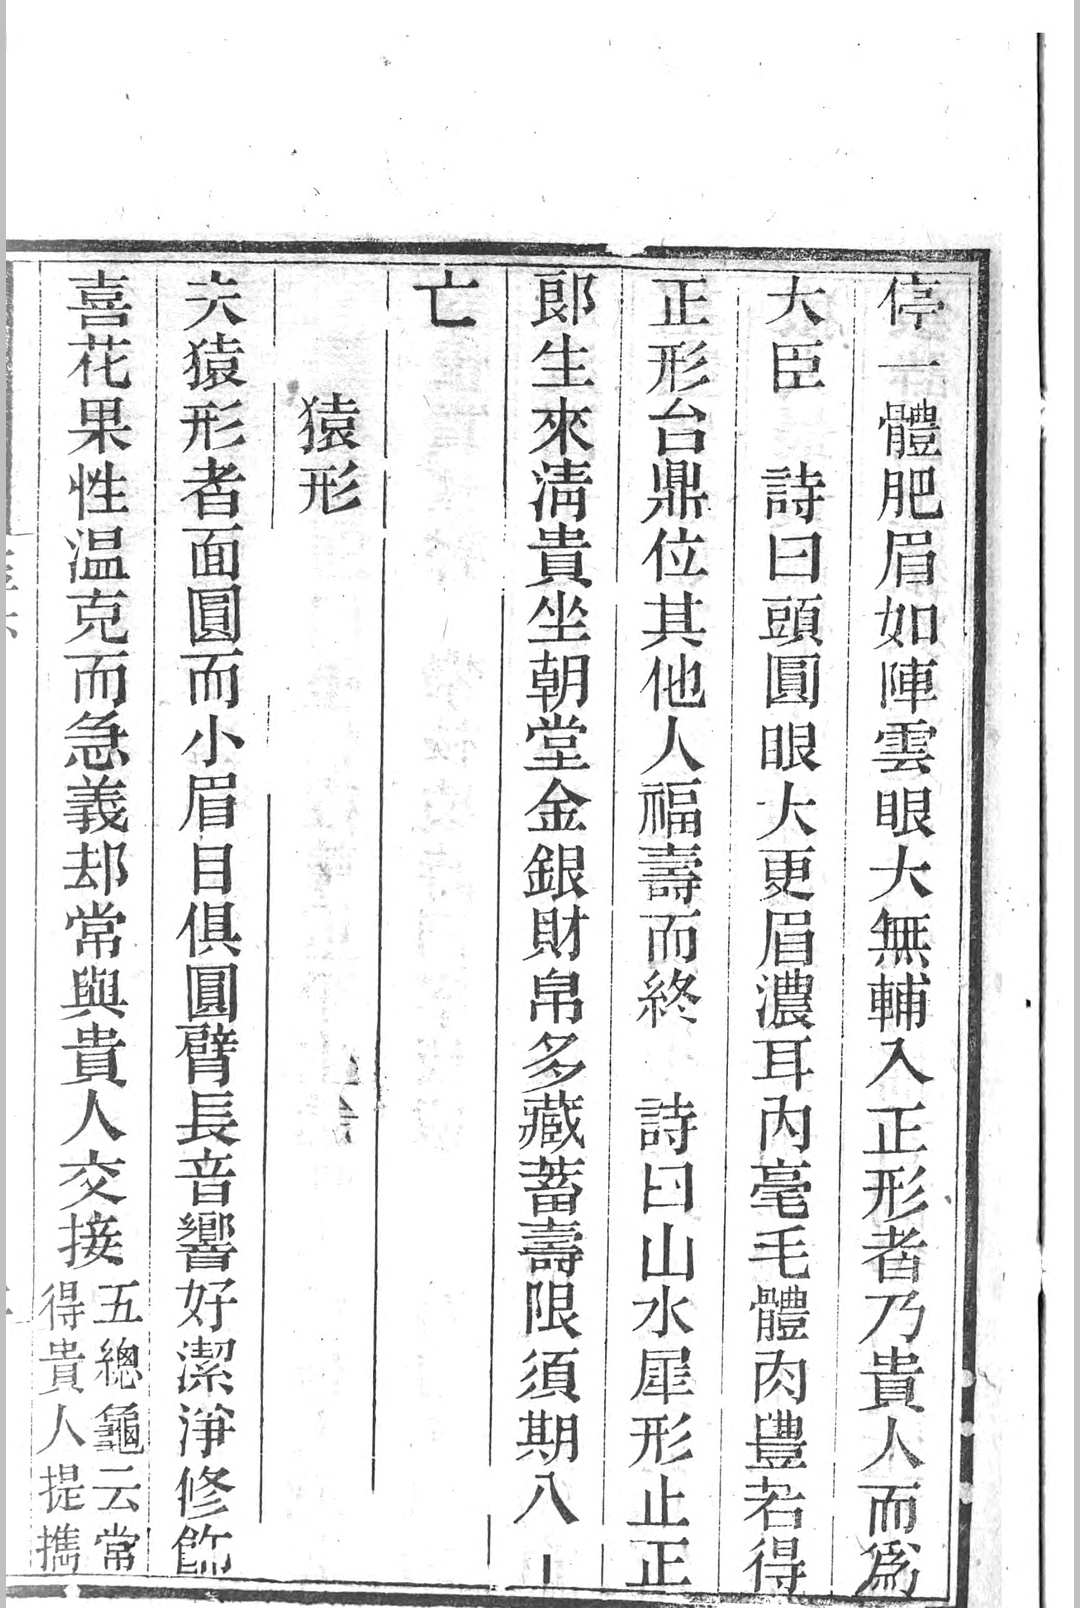 停一體肥眉如陣雲眼大無輔入正形者乃貴人而爲
大臣　詩曰頭圓眼大更眉濃耳內毫毛體肉豐若得
正形台鼎位其他人福壽而終　詩曰山水犀形止正
郞生來淸貴坐朝堂金銀財帛多藏蓄壽限須期八
亡
猿形
夫猿形者面圓而小眉目俱圓臂長音響好潔淨修飾
喜花果性温克而急義却常與貴人交接
五總龜云常
得貴人提攜